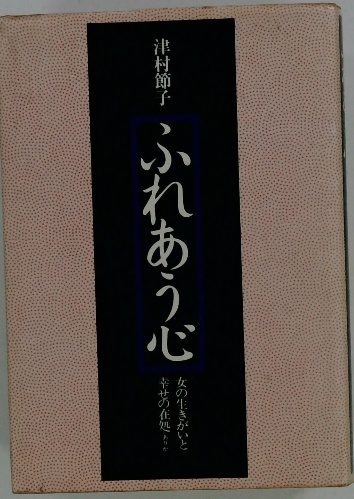 津村節子
ふれあう心
女の生きがいと
幸せの在処ありか